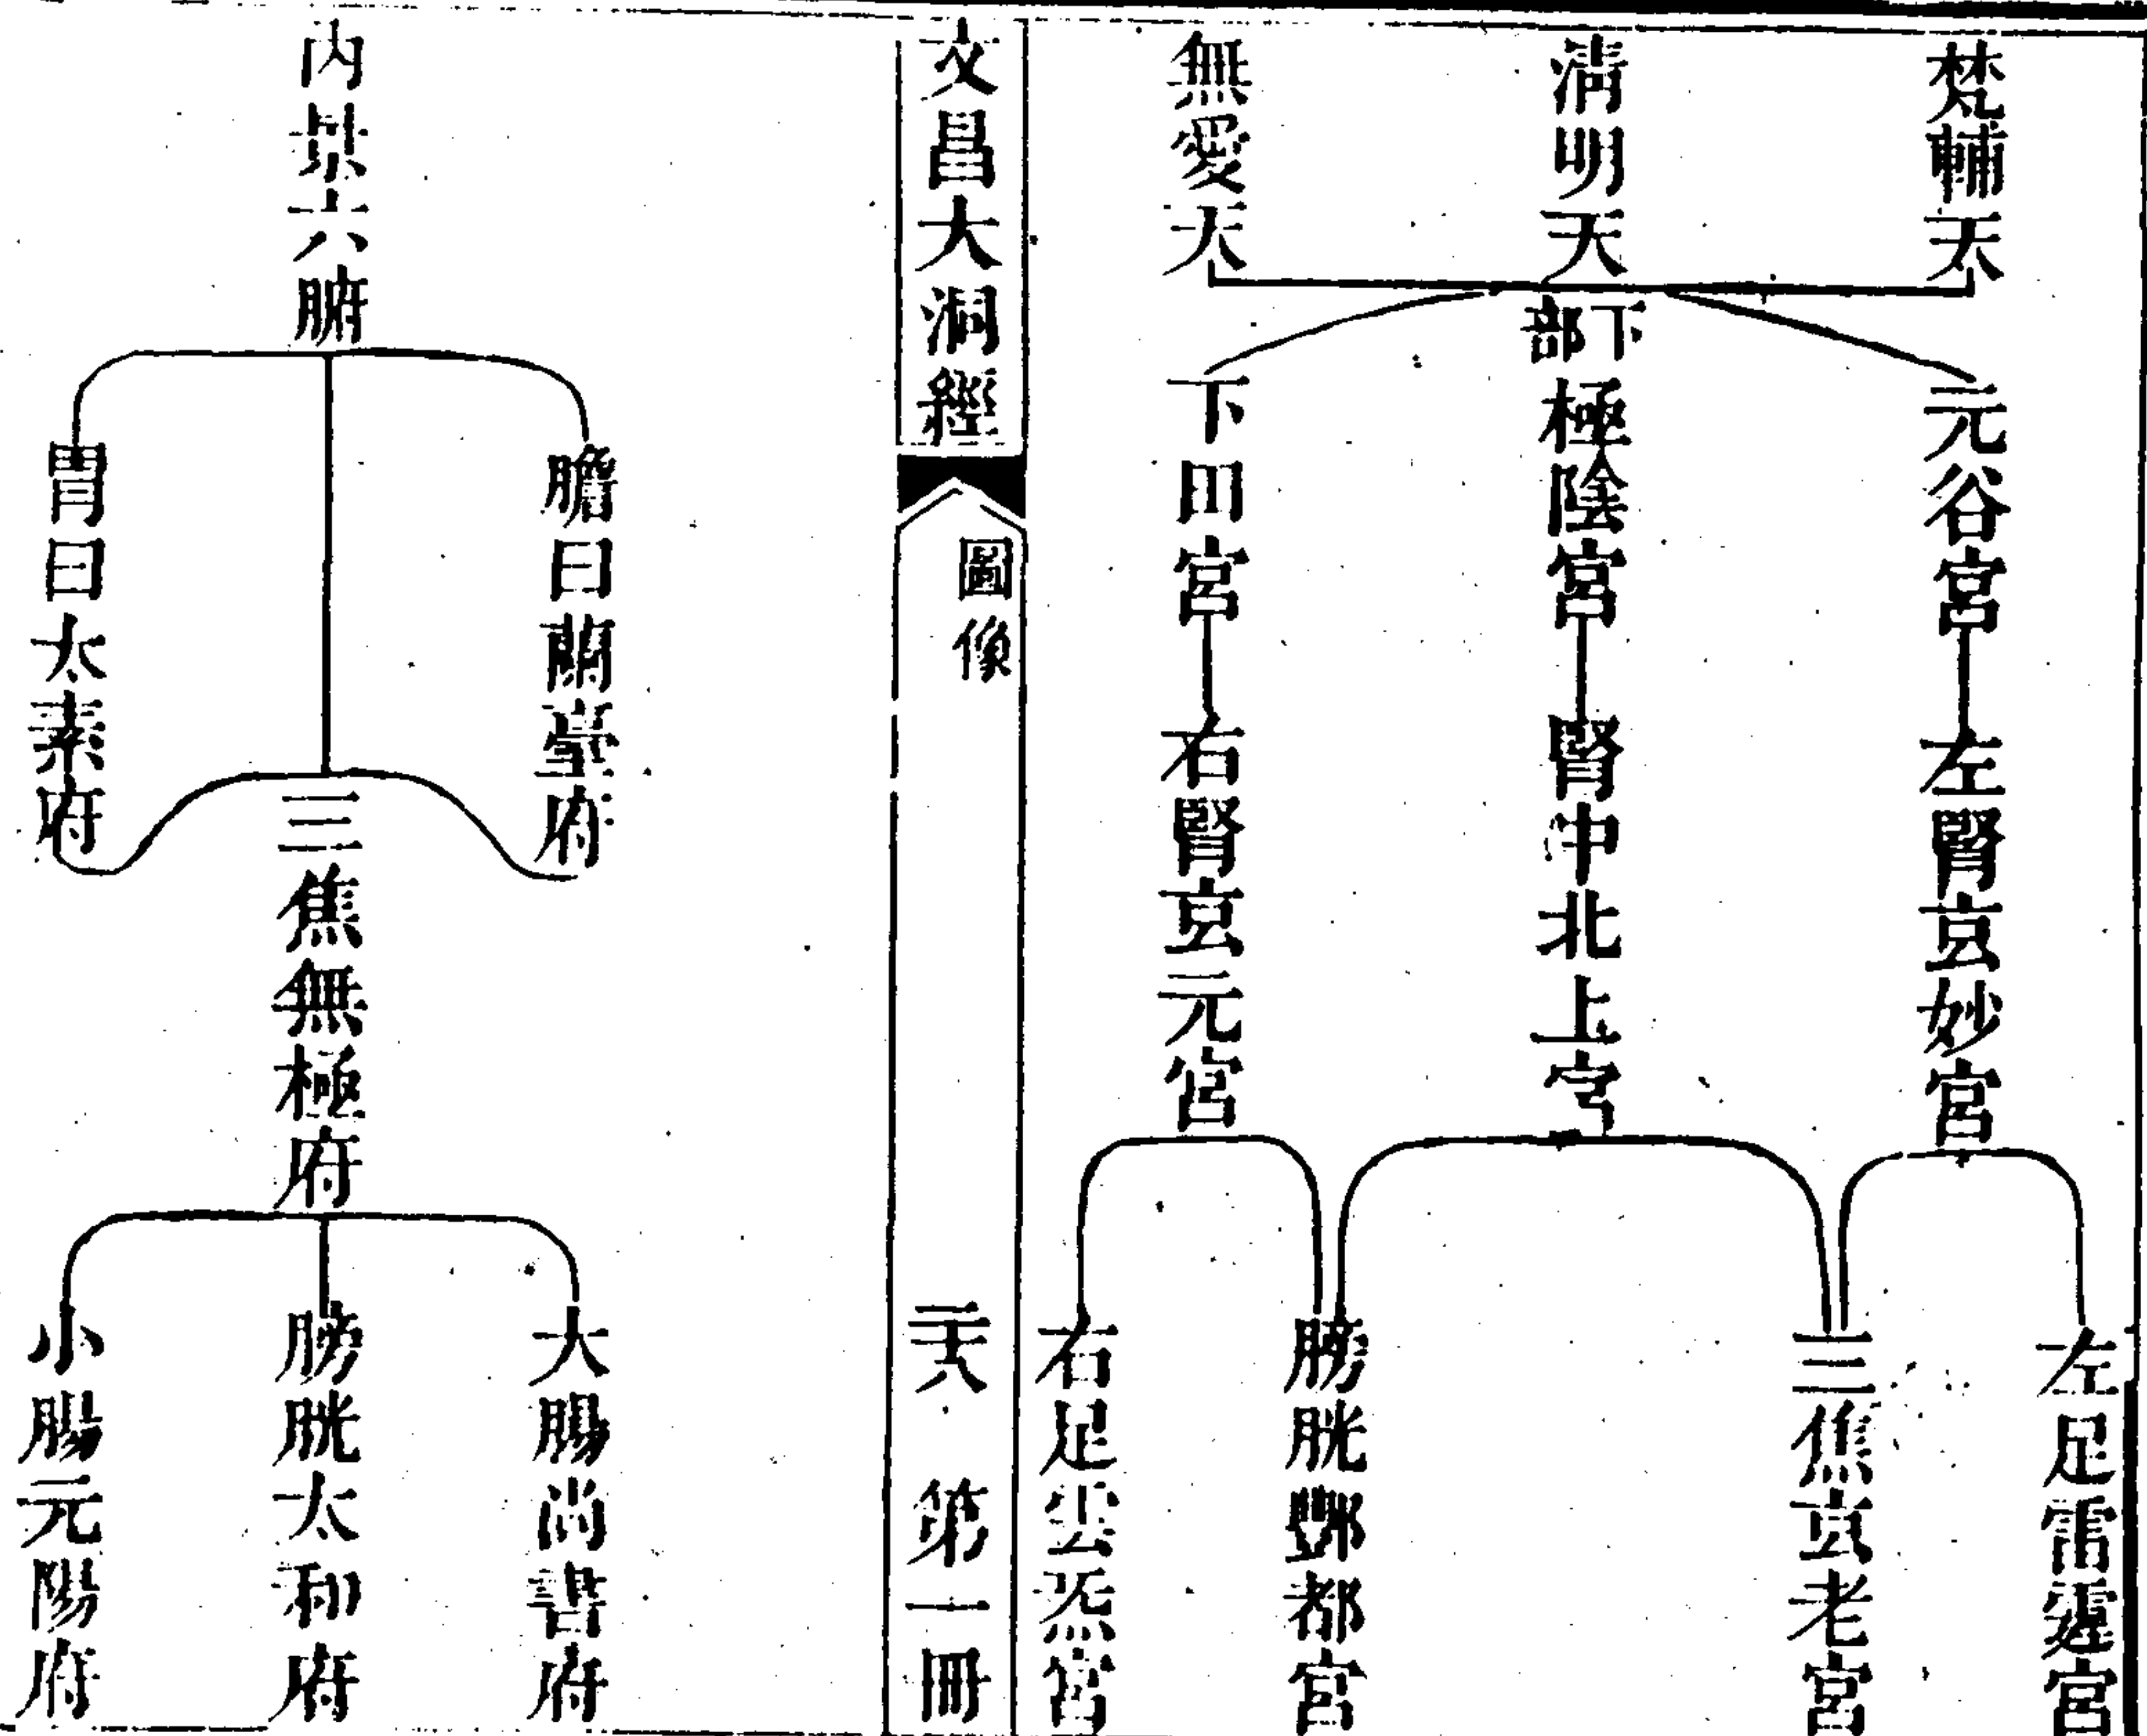 梵輔天
清明天
無愛天
下部
元谷宮
極陰宮
下田宮
左腎玄妙宮
腎中北上宮
右腎玄元宮
左足雷霆宮
三焦玄老宮
膀胱酆都宮
右足雲炁宮
文昌大洞經
圖像
二十六
第一冊
內景六腑
膽曰蘭臺府
胃曰太素府
三焦無極府
大腸尚書府
膀胱太和府
小腸元陽府